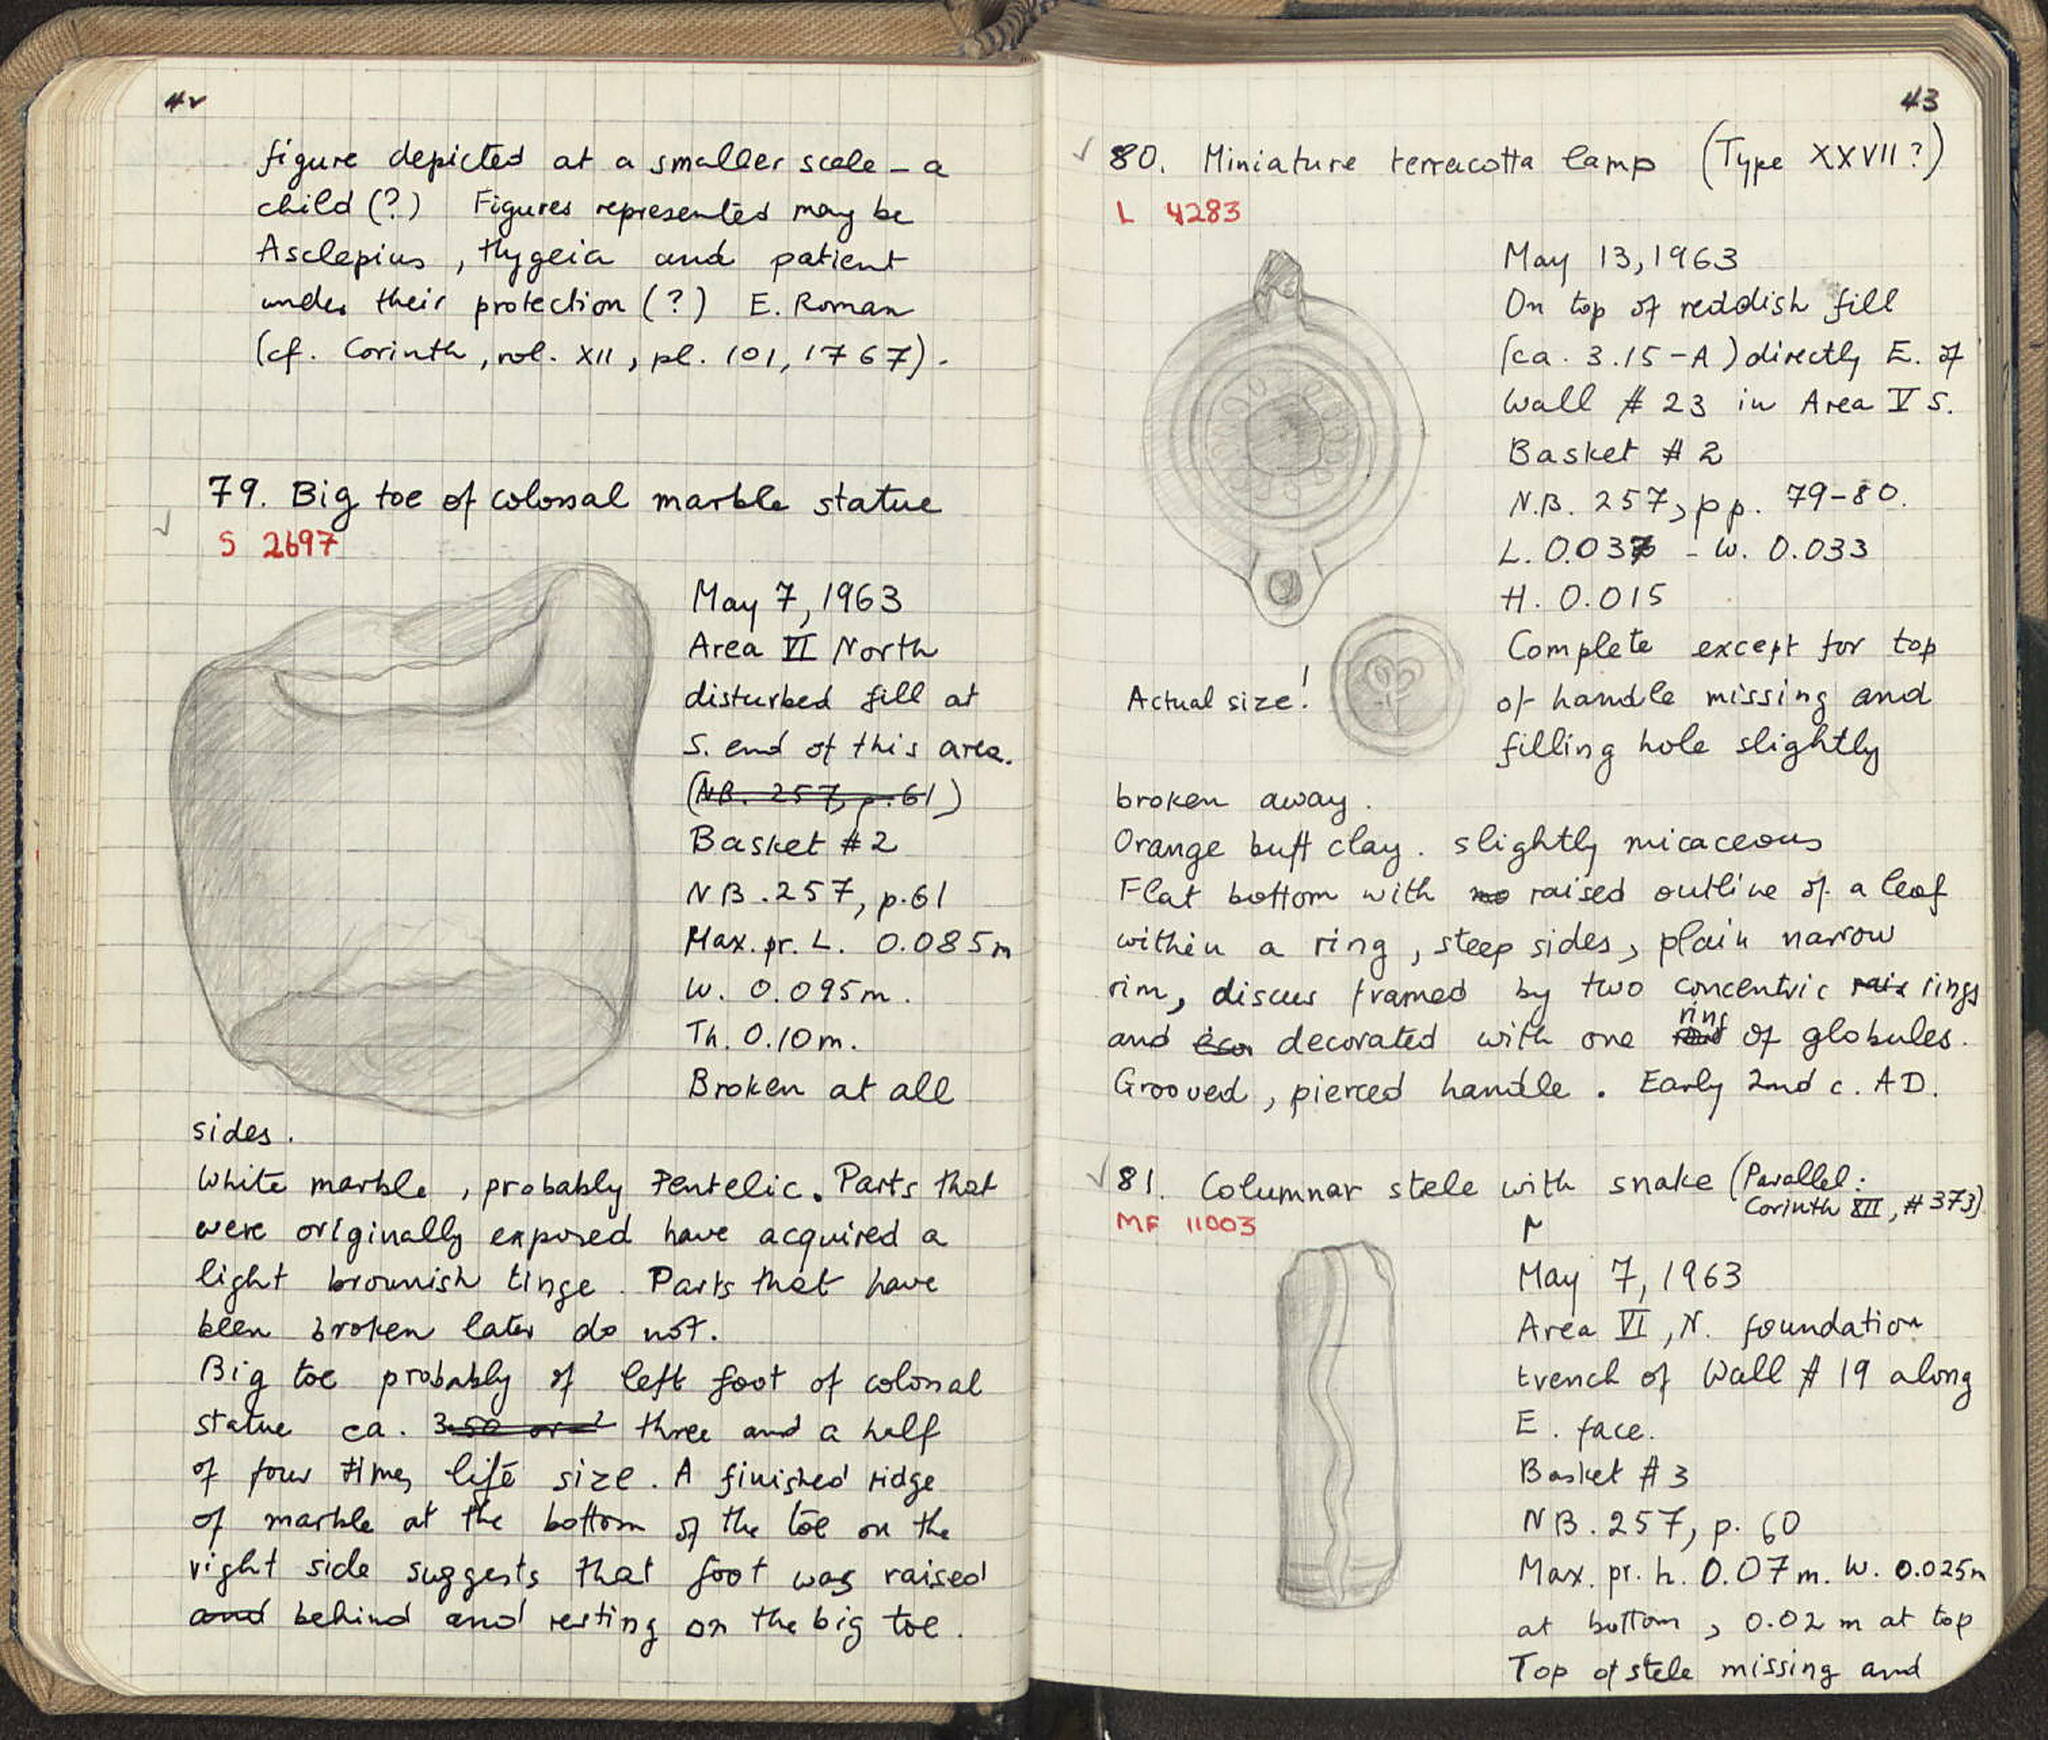 42
figure depicted at a smaller scale – a
child (?) Figures represented may be
Asclepius, Hygeia and patient
under their protection (?) E. Roman
(cf. Corinth, vol. XII, pl. 101, 1767).
79. Big toe of colossal marble statue
S 2697
May 7, 1963
Area VI North
disturbed fill at
S. end of this area.
(NB. 257, p. 61)
Basket #2
NB. 257, p. 61
Max. pr. L. 0.085m
W. 0.095m.
Th. 0.10m.
Broken at all
sides.
White marble, probably Pentelic. Parts that
were originally exposed have acquired a
light brownish tinge. Parts that have
been broken later do not.
Big toe probably of left foot of colossal
statue ca. 3.50 or three and a half
of four times life size. A finished ridge
of marble at the bottom of the toe on the
right side suggests that foot was raised
and behind and resting on the big toe.
43
80. Miniature terracotta lamp (Type XXVII?)
L 4283
May 13, 1963
On top of reddish fill
(ca. 3.15 – A) directly E. of
Wall #23 in Area V S.
Basket #2
N.B. 257, pp. 79–80.
L. 0.037 – W. 0.033
H. 0.015
Complete except for top
Actual size!
of handle missing and
filling hole slightly
broken away.
Orange buff clay. slightly micaceous
Flat bottom with no raised outline of a leaf
within a ring, steep sides, plain narrow
rim, discus framed by two concentric rais rings
and decorated with one ring of globules.
Grooved, pierced handle. Early 2nd c. AD.
81. Columnar stele with snake (Parallel:
Corinth XII, #373)
MF 11003
M
May 7, 1963
Area VI, N. foundation
trench of Wall #19 along
E. face.
Basket #3
NB. 257, p. 60
Max. pr. h. 0.07m. W. 0.025m
at bottom, 0.02 m at top
Top of stele missing and